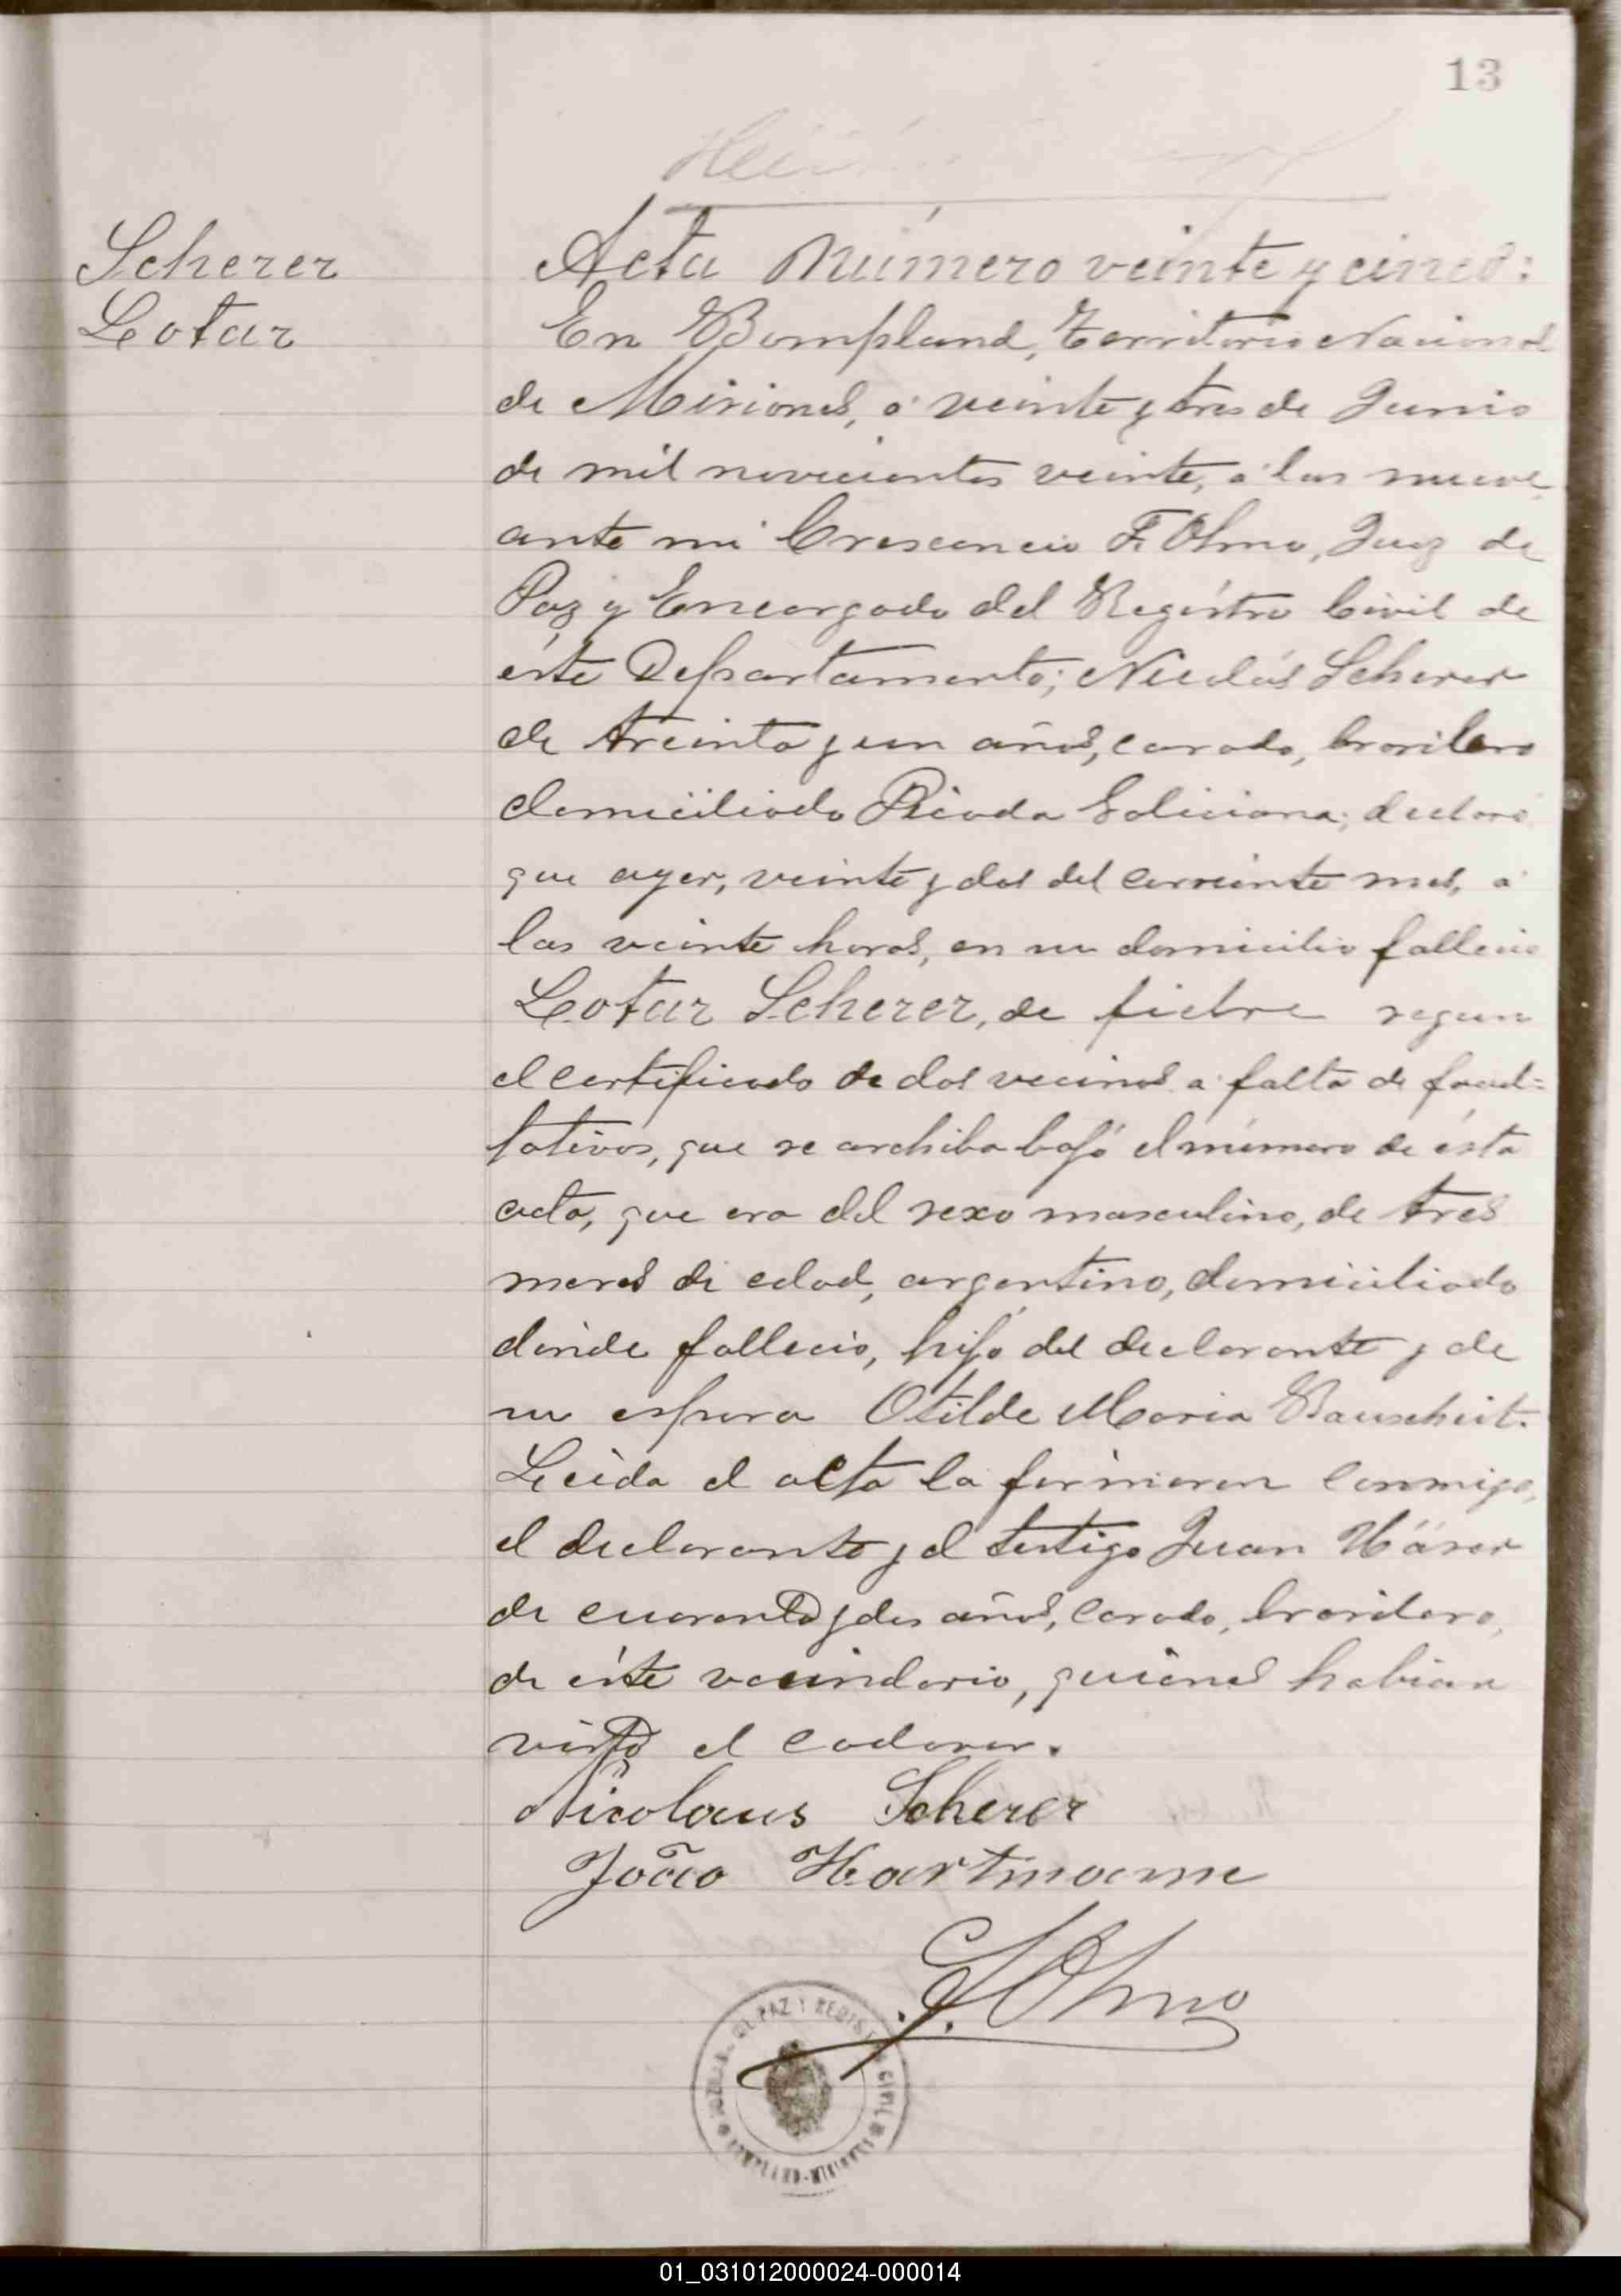 13
Scherer
Lotar
Acta Número veinte y cinco:
En Bompland, Territorio Nacional
de Misiones, á veinte y tres de Junio
de mil novecientos veinte, á las nueve,
ante mi Crescencio F. Olmo, Juez de
Paz y Encargado del Registro Civil de
éste Departamento; Nicolás Scherer
de treinta y un años, casado, brasilero
domiciliado Picada Galiciana; declaró
que ayer, veinte y dos del corriente mes, á
las veinte horas, en su domicilio fallecio
Lotar Scherer, de fiebre segun
el certificado de dos vecinos a falta de facul=
tativos, que se archiba bajó el número de ésta
acta, que era del sexo masculino, de tres
meses de edad, argentino, domiciliado
dónde fallecio, hijó del declarante y de
su esposa Otilde Maria Bauscheit.
Leeida el acta la firmaron conmigo,
el declarante y el testigo Juan
de cuarenta y dos años, casado, brasilero,
de éste vecindario, quienes habian
visto el cadaver.
Nicolaus Scherer
João Hartmann
C. F. Olmo
JUZGADO DE PAZ Y REGISTRO CIVIL
BOMPLAND-MISIONES
01_031012000024-000014